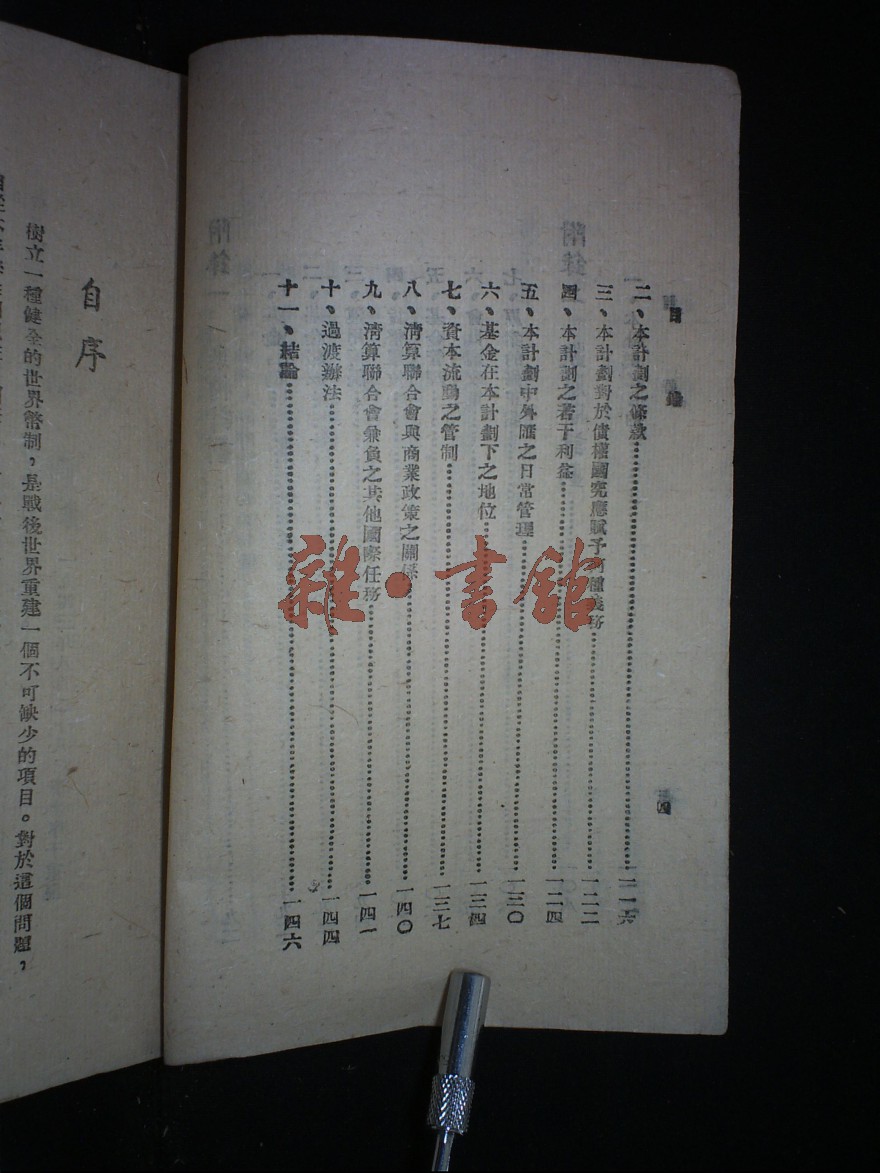 目錄
四
二、本計劃之條款 一一六
三、本計劃對於債權國究應賦予何種義務 一二二
四、本計劃之若干利益 一二四
五、本計劃中外匯之日常管理 一三〇
六、基金在本計劃下之地位 一三四
七、資本流動之管制 一三七
八、清算聯合會與商業政策之關係 一四〇
九、清算聯合會兼負之其他國際任務 一四一
十、過渡辦法 一四四
十一、結論 一四六
自序
樹立一種健全的世界幣制，是戰後世界重建一個不可缺少的項目。對於這個問題，
雜·書館